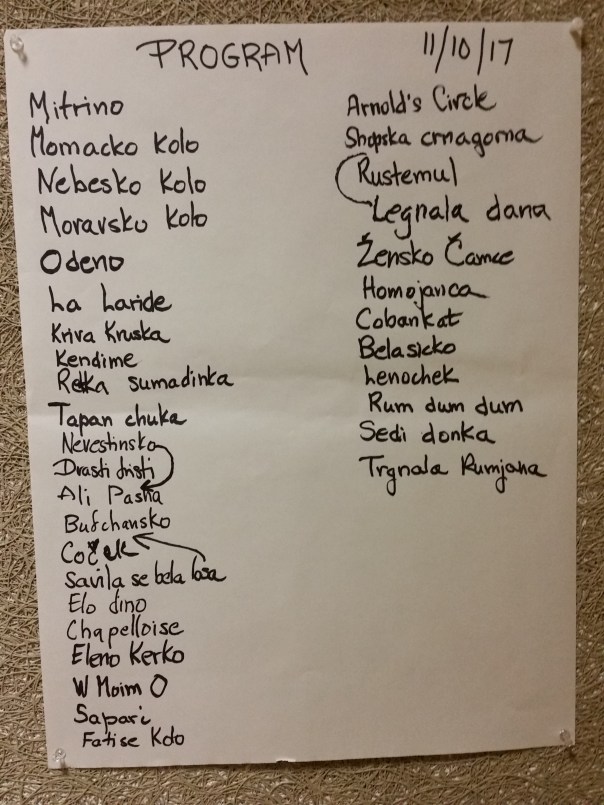 PROGRAM 11/10/17
Mitrino
Momacko Kolo
Nebesko Kolo
Moravsko Kolo
Odeno
La Laride
Kriva Kruska
Kendime
Retka sumadinka
Tapan chuka
Nevestinsko
Drasti dristi
Ali Pasha
Bufchansko
Coček
Savila se bela losa
Elo dino
Chapelloise
Eleno Kerko
W Moim O
Sapari
Fatise Kolo
Arnold's Circle
Shopska crnagorna
Rustemul
Legnala dana
Žensko Čamce
Homojanca
Cobankat
Belasicko
Lenochek
Rum dum dum
Sedi donka
Trgnala Rumjana